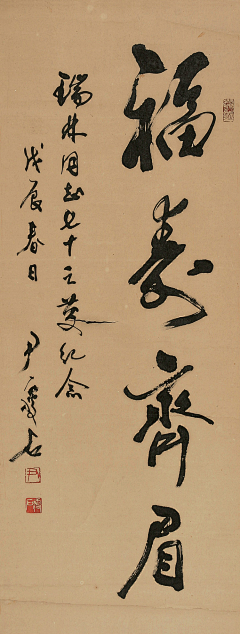 福寿齊眉
瑞林同志七十之慶纪念
戊辰春日
尹瘦石